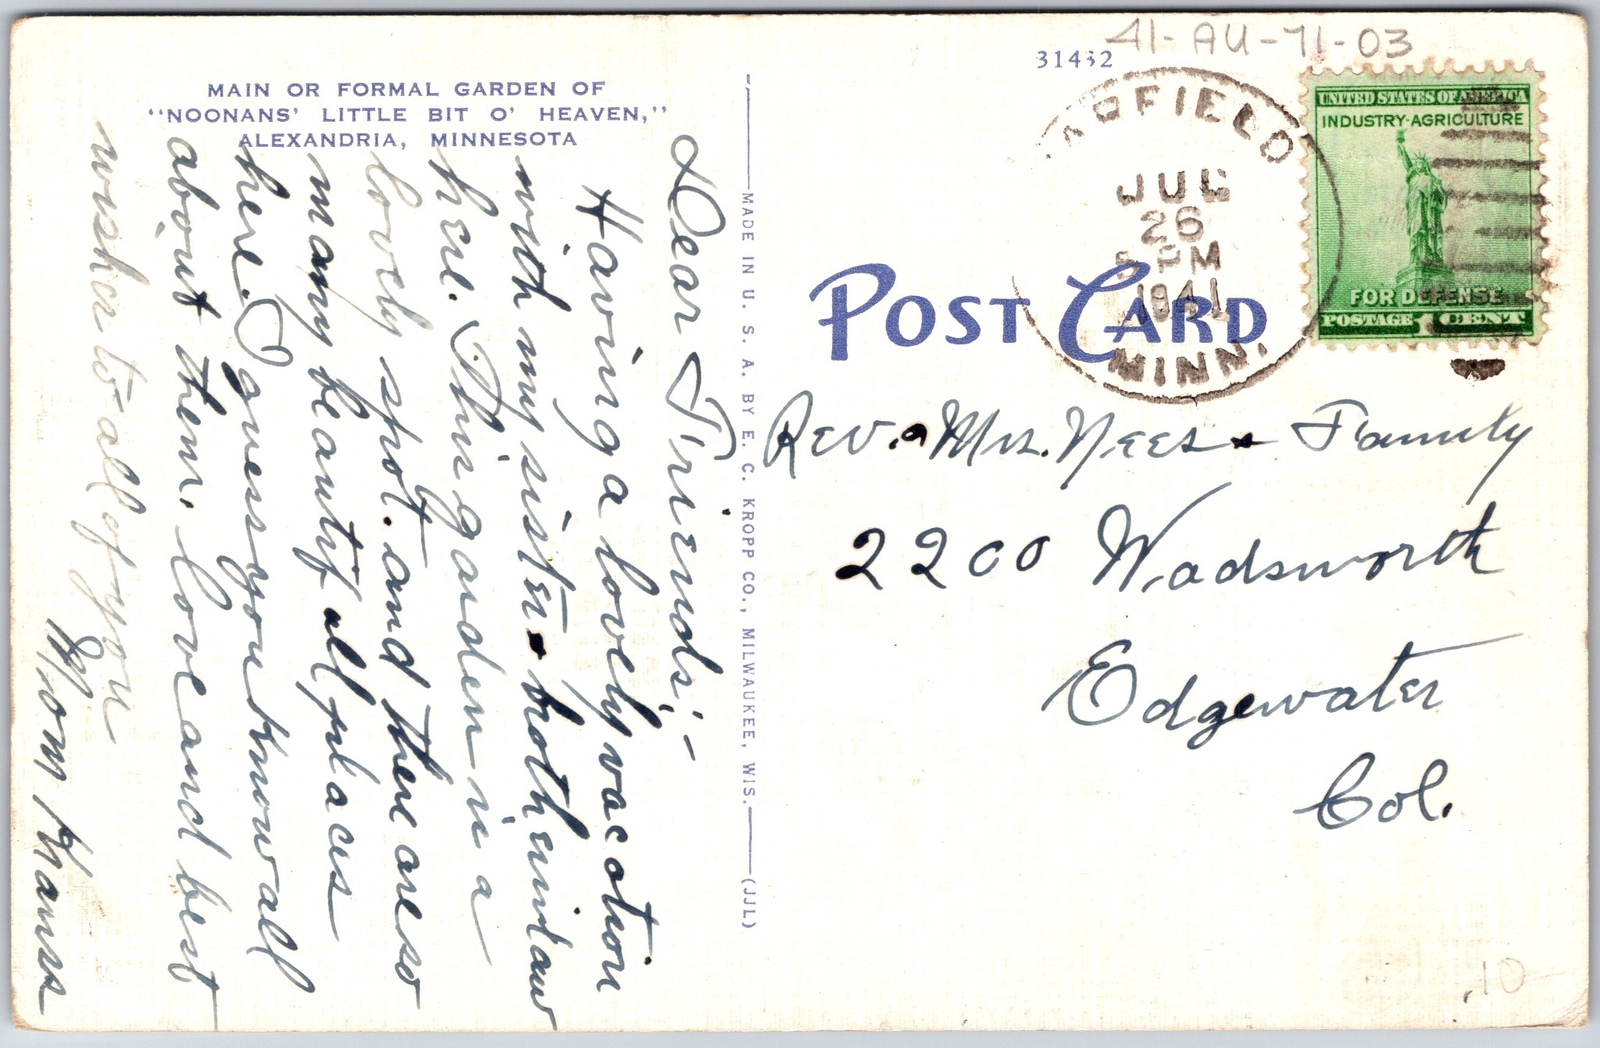 MAIN OR FORMAL GARDEN OF
"NOONANS' LITTLE BIT O' HEAVEN,"
ALEXANDRIA, MINNESOTA
Dear Friends:-
Having a lovely vacation
with my sister & brotherinlaw
here. This garden in a
lovely spot. and there are so
many beautiful places
here. I guess you know all
about them. Love and best
wishes to all of you
Mom Hanss
MADE IN U. S. A. BY E. C. KROPP CO., MILWAUKEE, WIS. (JJL)
31432
41-AU-71-03
POST CARD
GARFIELD
JUL
26
5 PM
1941
MINN.
UNITED STATES OF AMERICA
INDUSTRY-AGRICULTURE
FOR DEFENSE
POSTAGE 1 CENT
Rev. & Mrs. Nees & Family
2200 Wadsworth
Edgewater
Col.
.10